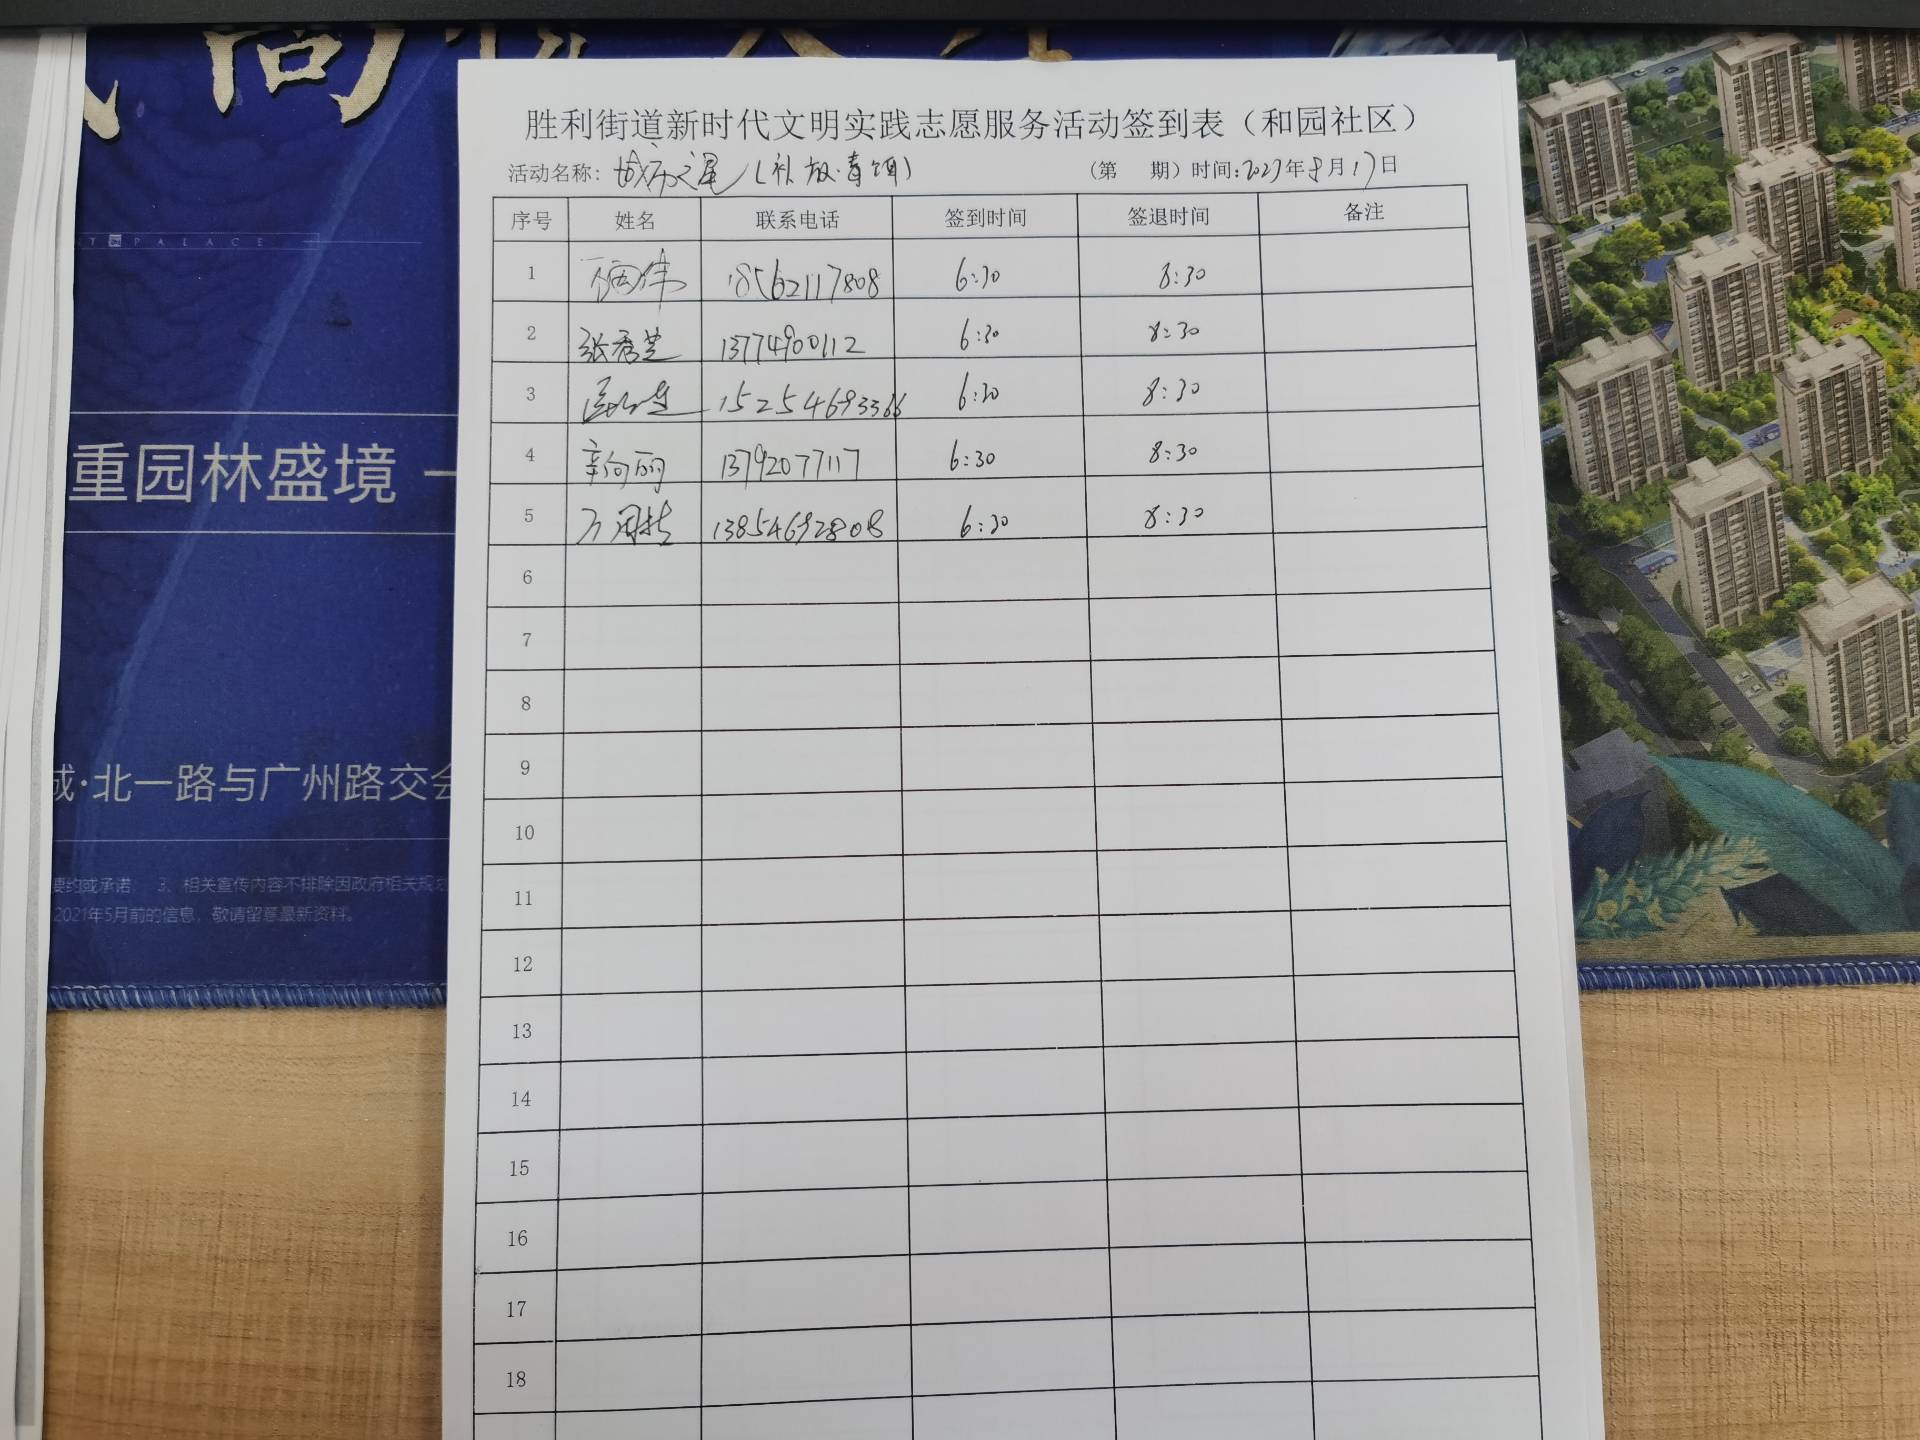 胜利街道新时代文明实践志愿服务活动签到表（和园社区）
活动名称：城市之星（补放·青颂）
（第 期）时间：2023年8月17日
序号 姓名 联系电话 签到时间 签退时间 备注
1 18562117808 6:30 8:30
2 张秀芝 13774900112 6:30 8:30
3 15254693366 6:30 8:30
4 辛向丽 13792077117 6:30 8:30
5 13854692808 6:30 8:30
6
7
8
9
10
11
12
13
14
15
16
17
18
PALACE
重园林盛境
城·北一路与广州路交会
要约或承诺； 3、相关宣传内容不排除因政府相关规划
2021年5月前的信息，敬请留意最新资料。